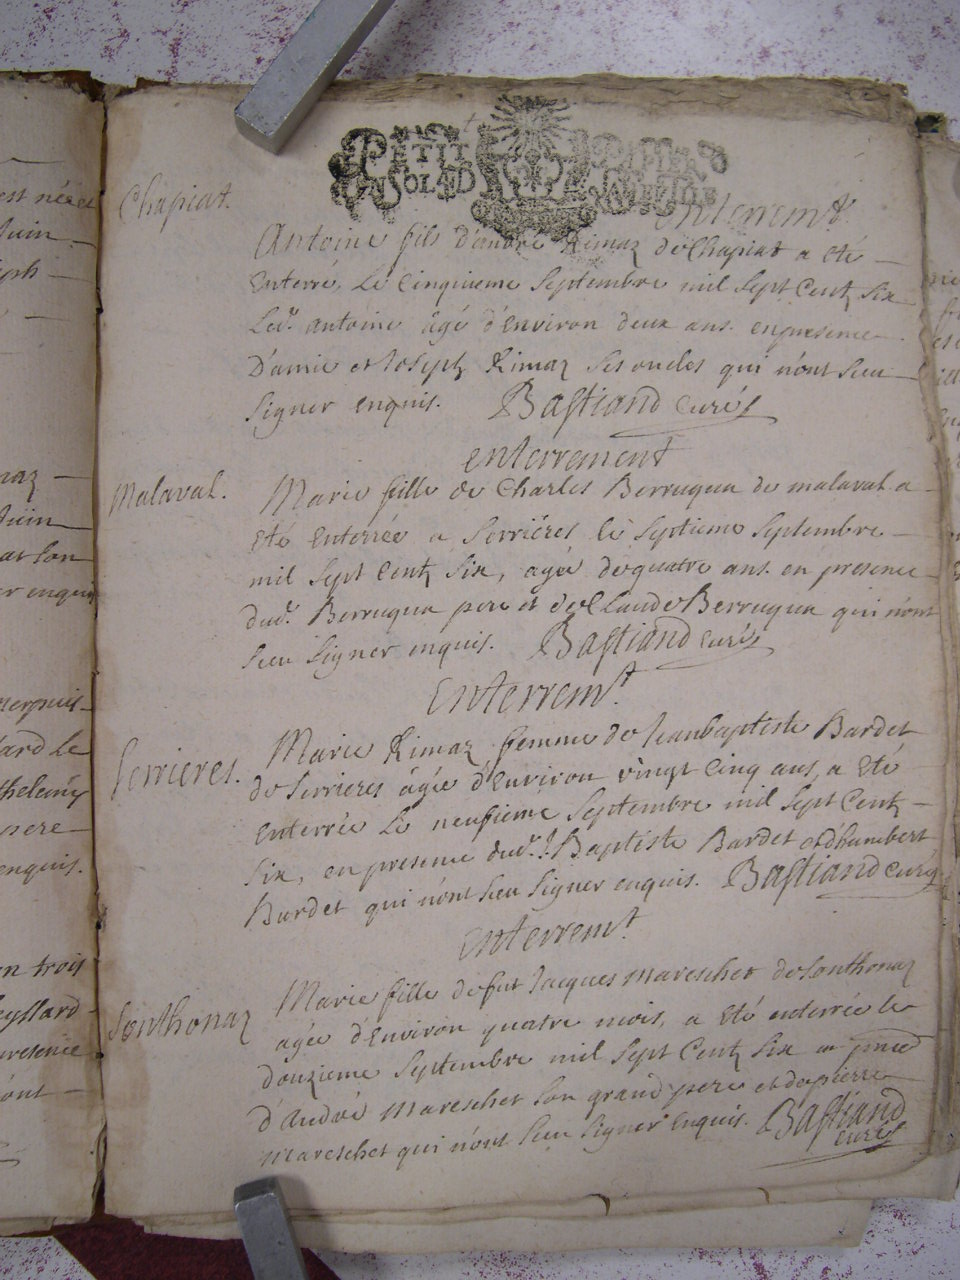 PETIT PAPIER
UN SOL SIX D
Chapiat.
enterremt.
Antoine fils d'andré Rimaz de Chapiat a eté
enterré, le cinquieme septembre mil sept centz six
Led. antoine âgé d'environ deux ans. en presence
D'amie et Joseph Rimaz ses oncles qui n'ont sceu
signer enquis. Bastiand curé
enterrement
Malaval. Marie fille de Charles Berruquu de malaval a
eté enterrée a serriéres le septieme septembre
mil sept centz six, agée de quatre ans. en presence
dud. Berruquu pere et de Claude Berruquu qui n'ont
sceu signer enquis. Bastiand curé
Enterremt.
Serrieres. Marie Rimaz femme de Jeanbaptiste Bardet
de serrieres âgée d'environ vingt cinq ans, a eté
enterrée le neufieme septembre mil sept centz
six, en presence dud. J. Baptiste Bardet et d'humbert
Bardet qui n'ont sceu signer enquis. Bastiand curé
enterremt.
Sonthonaz Marie fille de fut Jacques Mareschet de Sonthonaz
agée d'environ quatre mois, a eté enterrée le
douzieme septembre mil sept centz six en pnce
d'André Mareschet son grand pere et de pierre
Mareschet qui n'ont sceu signer enquis. Bastiand
curé